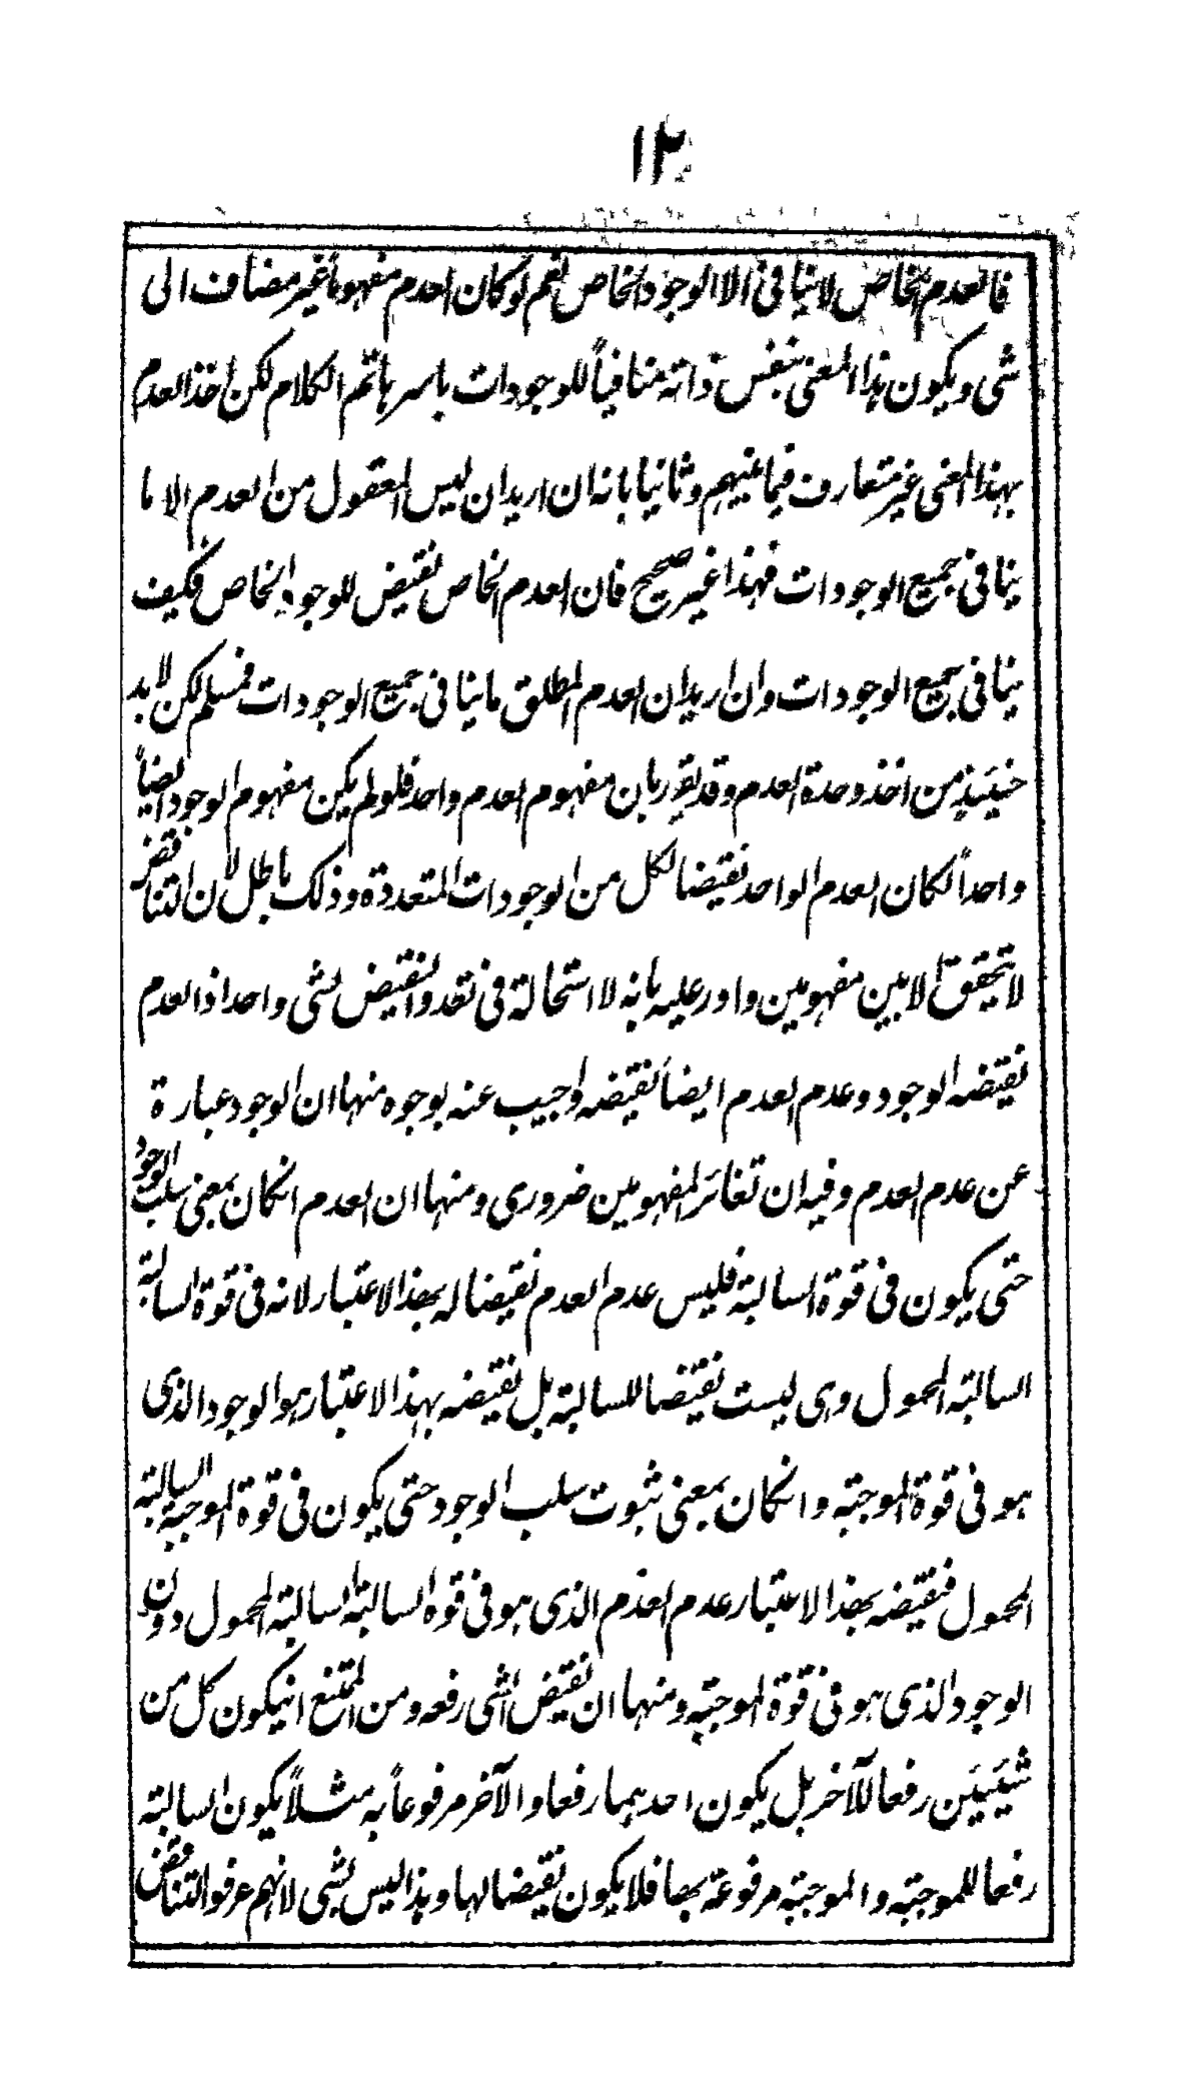 ١٢
فالعدم الخاص لا ينافى الا الوجود الخاص نعم لو كان العدم مفهوماً غير مضاف الى
شى ويكون هذا المعنى بنفس ذاته منافياً للوجودات باسرها تم الكلام لكن اخذ العدم
بهذا المعنى غير متعارف فيما بينهم وثانيا بانه ان اريد ان ليس المعقول من العدم الا ما
ينافى جميع الوجودات فهذا غير صحيح فان العدم الخاص نقيض للوجود الخاص فكيف
ينافى جميع الوجودات وان اريد ان العدم المطلق ما ينافى جميع الوجودات فمسلم لكن لا بد
حينئذ من اخذ وحدة العدم وقد يقرر بان مفهوم العدم واحد فلو لم يكن مفهوم الوجود ايضاً
واحداً لكان العدم الواحد نقيضا لكل من الوجودات المتعددة وذلك باطل لان التناقض
لا يتحقق الا بين مفهومين واورد عليه بانه لا استحالة فى تعدد النقيض لشى واحد اذ العدم
نقيضه الوجود وعدم العدم ايضاً نقيضه واجيب عنه بوجوه منها ان الوجود عبارة
عن عدم العدم وفيه ان تغائر المفهومين ضرورى ومنها ان العدم انكان بمعنى سلب الوجود
حتى يكون فى قوة السالبة فليس عدم العدم نقيضا له بهذا الاعتبار لانه فى قوة السالبة
السالبة المحمول وهى ليست نقيضا للسالبة بل نقيضه بهذا الاعتبار هو الوجود الذى
هو فى قوة الموجبة وانكان بمعنى ثبوت سلب الوجود حتى يكون فى قوة الموجبة السالبة
المحمول فنقيضه بهذا الاعتبار عدم العدم الذى هو فى قوة السالبة السالبة المحمول دون
الوجود الذى هو فى قوة الموجبة ومنها ان نقيض الشى رفعه ومن الممتنع انيكون كل من
شيئين رفعا للآخر بل يكون احدهما رفعا والآخر مرفوعاً به مثلاً يكون السالبة
رفعا للموجبة والموجبة مرفوعة بها فلا يكون نقيضا لها وهذا ليس بشى لانهم عرفوا التناقض